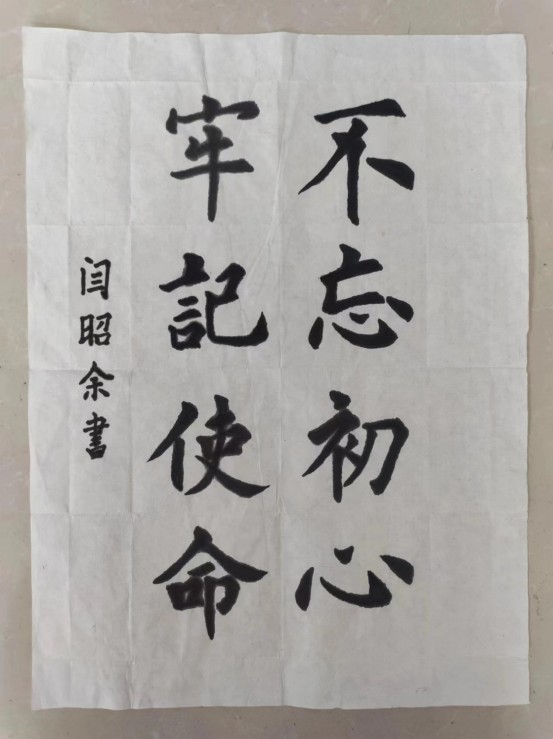 不忘初心
牢記使命
闫昭余書